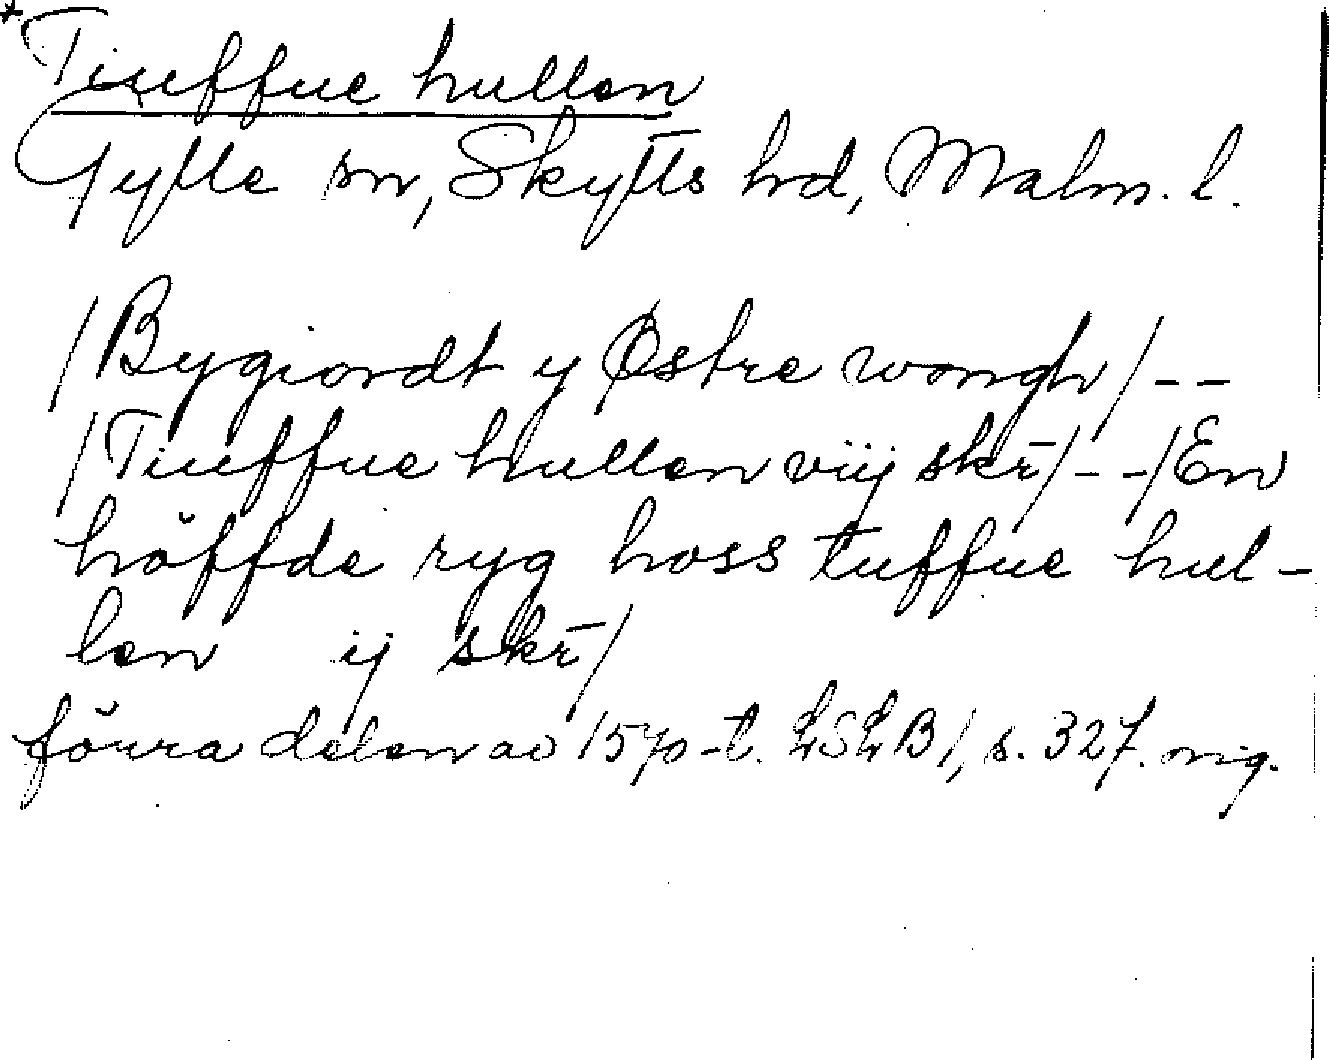 *Tiuffue hullen
Gylle sn, Skytts hd, Malm. l.
/Bygiordt y Østre wongh/--
/Tiuffue hullen viij skr̄/--/En
höffde ryg hoss tuffue hul-
len ij skr̄/
förra delen av 1570-t. LSLB1, s. 327. mg.